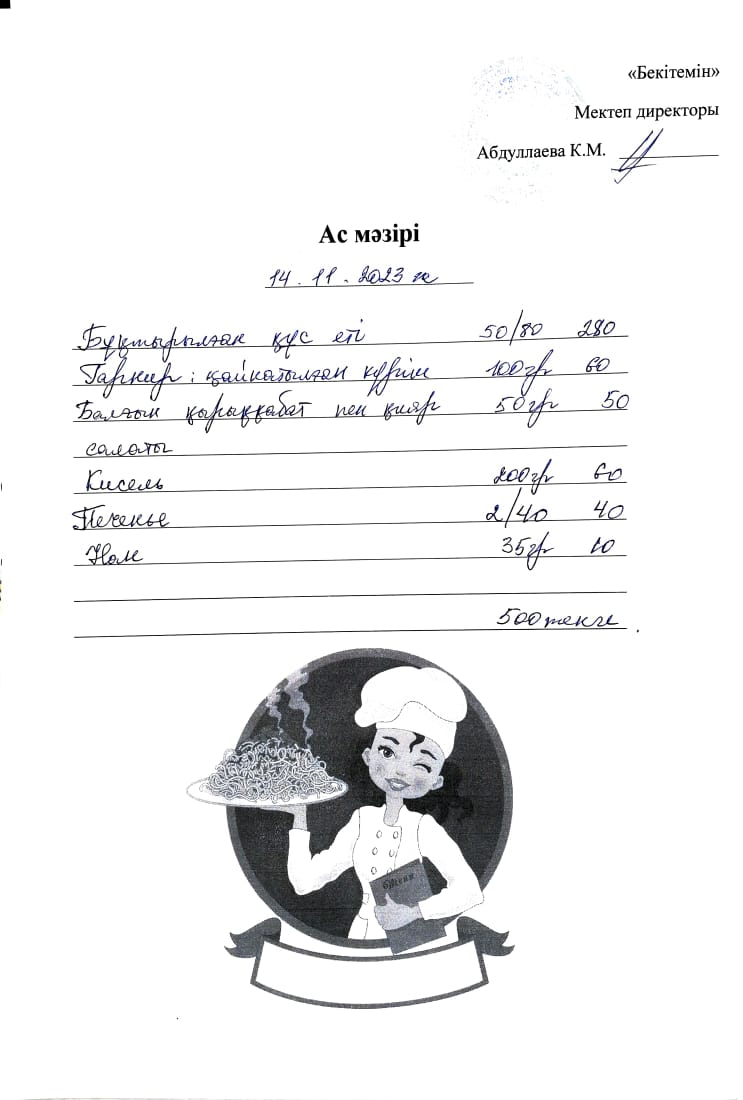 «Бекітемін»
Мектеп директоры
Абдуллаева К.М.
Ас мәзірі
14 . 11 . 2023 ж
Бұқтырылған құс еті 50/80 280
Гарнир : қайнатылған күріш 100гр 60
Балғын қырыққабат пен қияр 50гр 50
салаты
Кисель 200гр 60
Печенье 2/40 40
Нан 35гр 10
500 теңге .
Меню